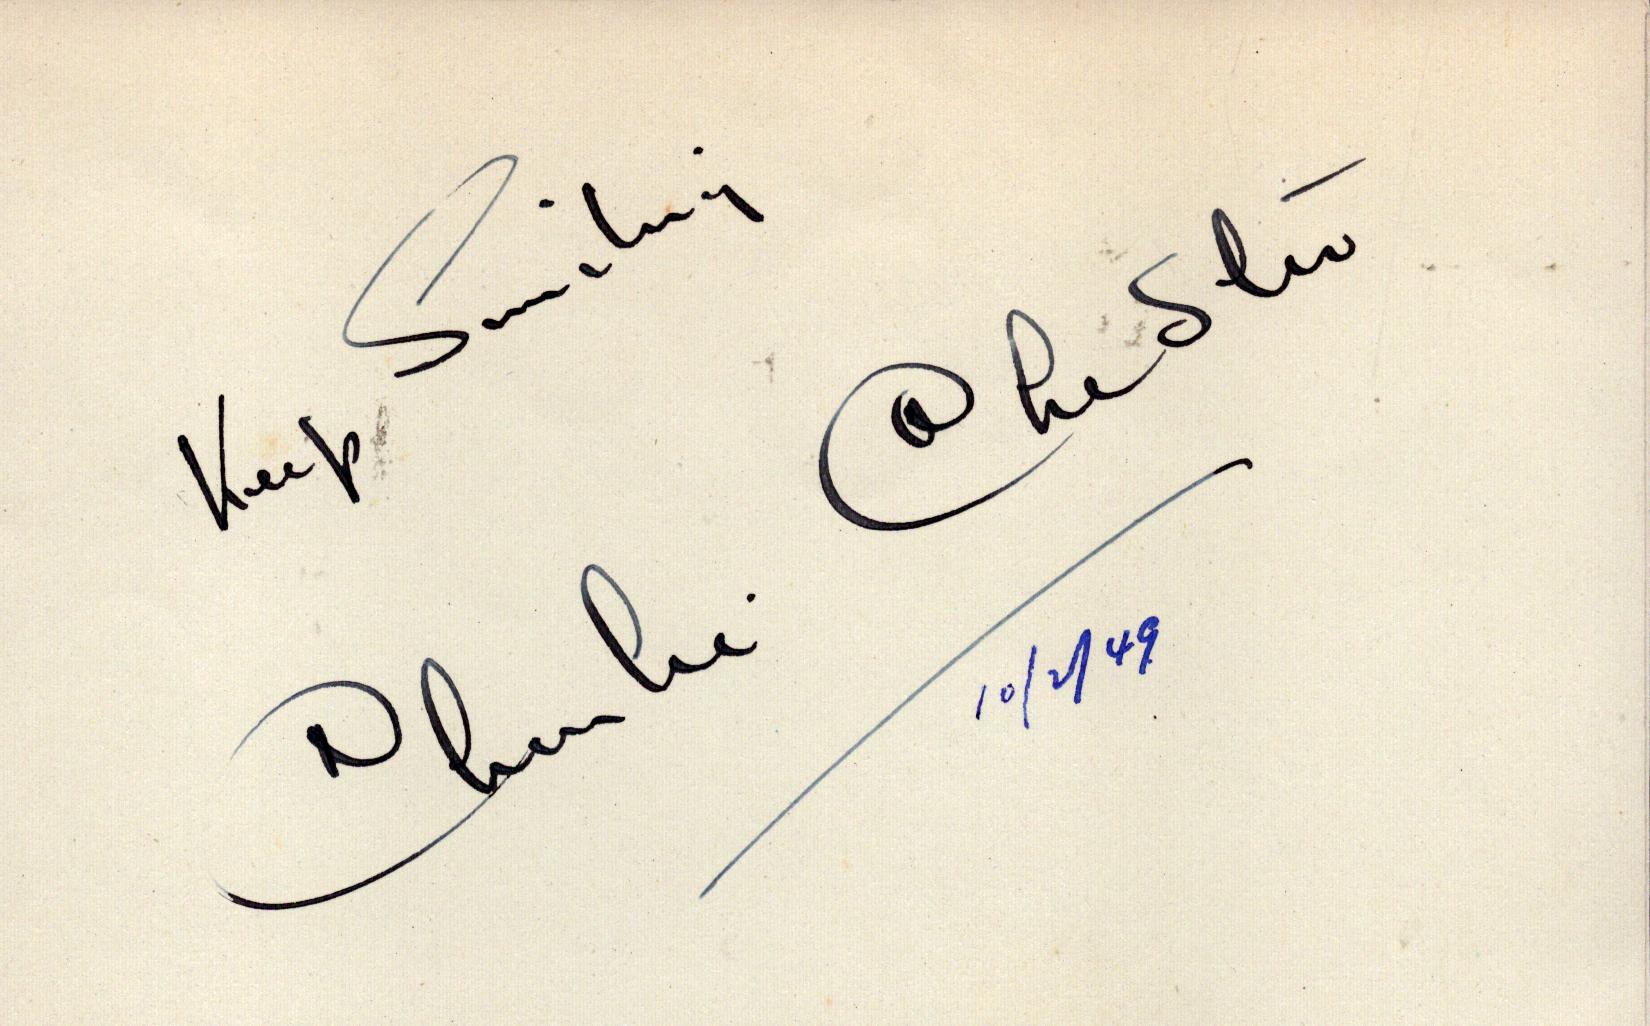 Keep Smiling
Charlie Chester
10/2/49